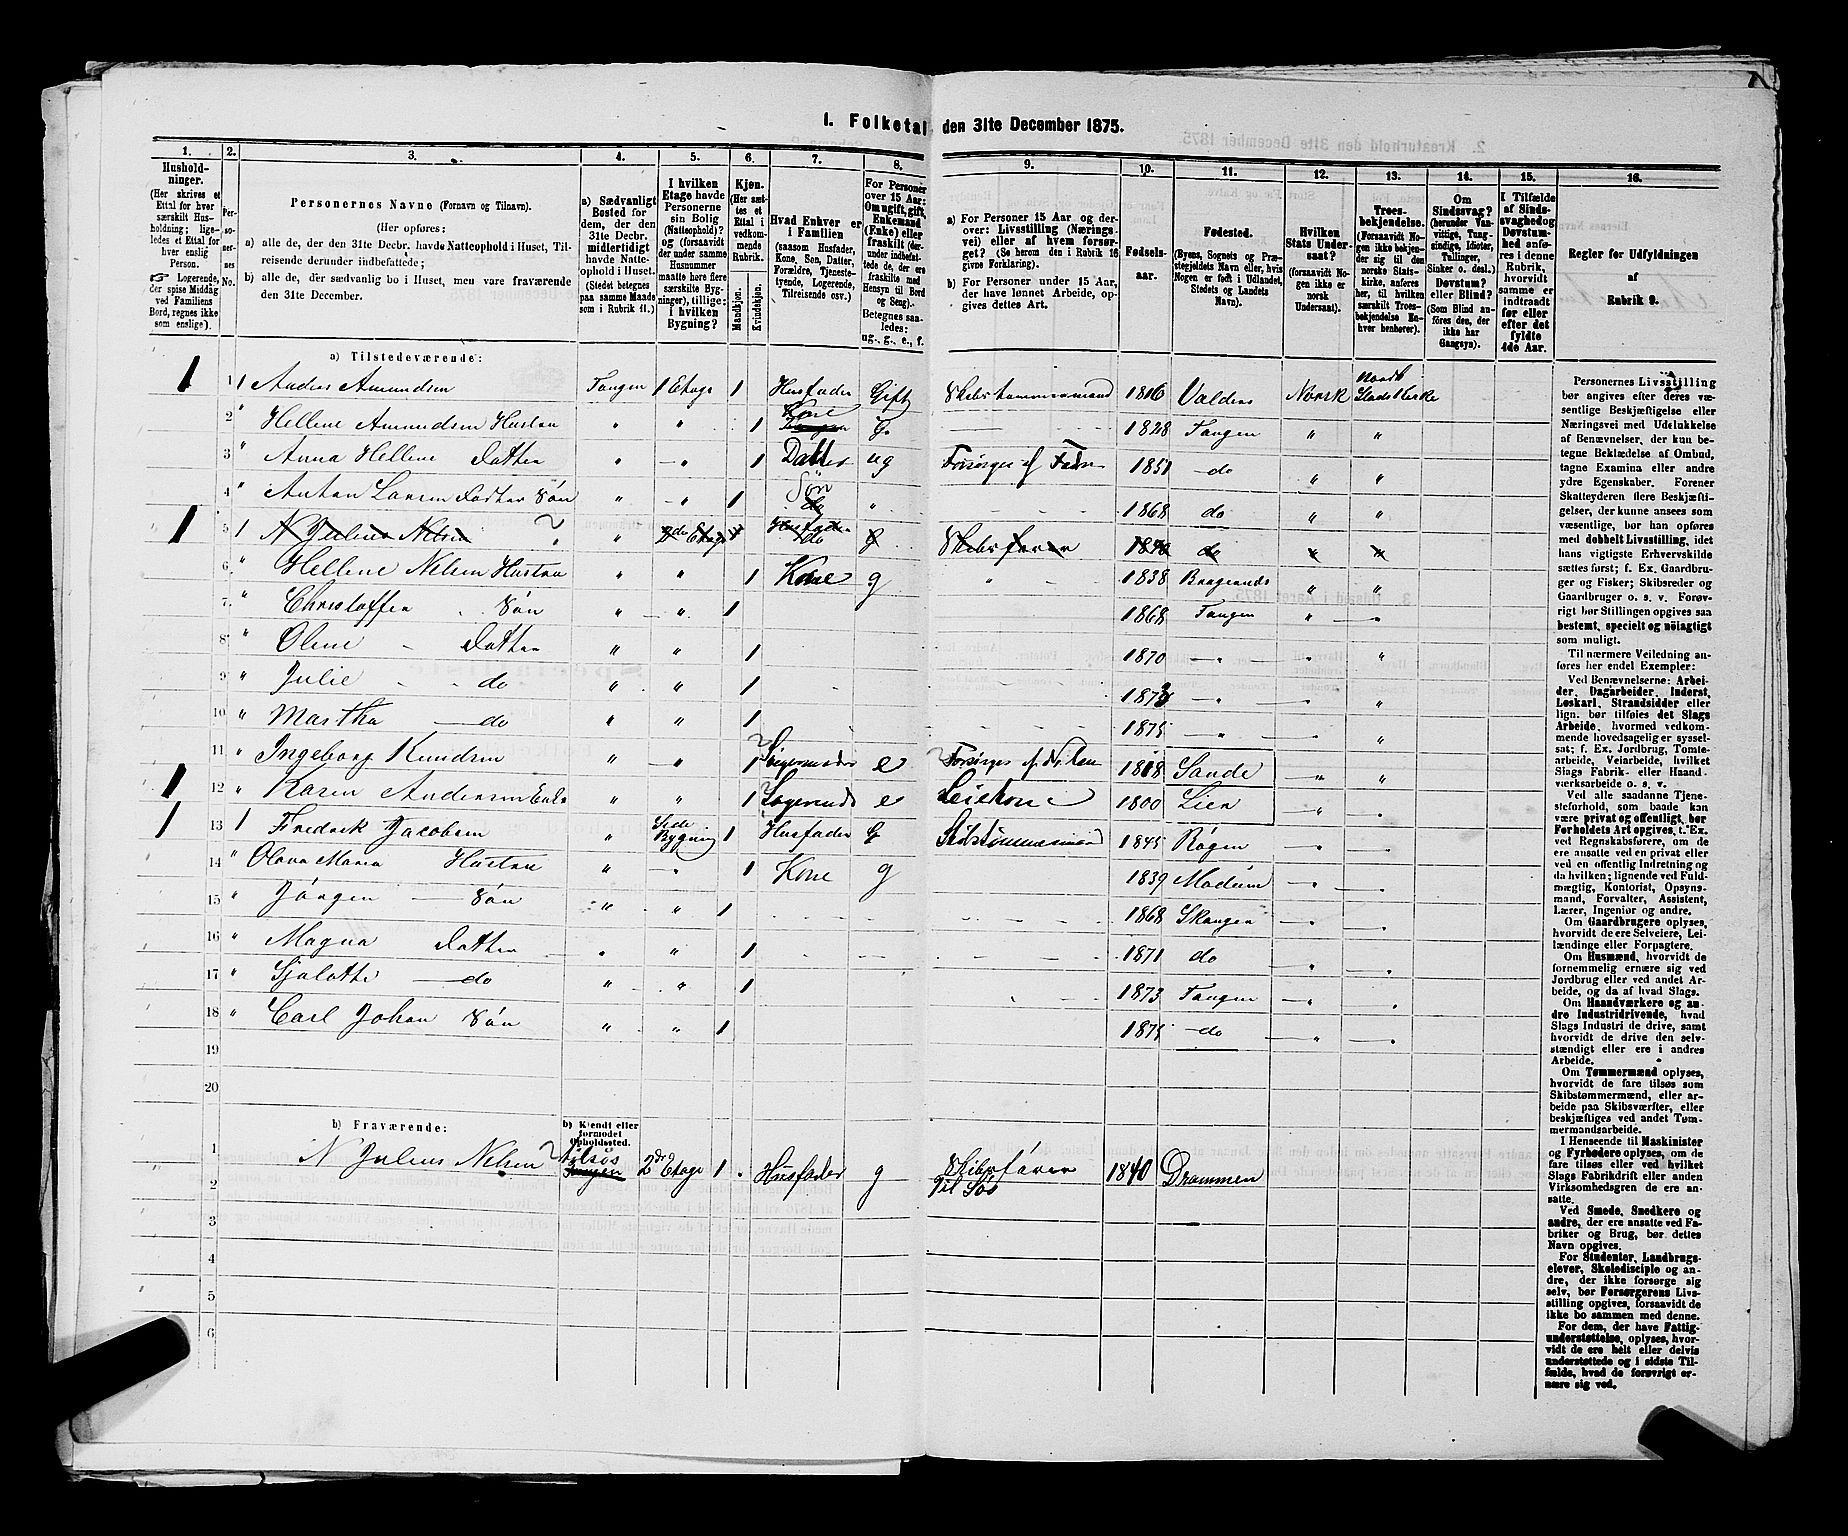 1. Folketal den 31te December 1875.
1.
2.
3.
4.
5.
6.
7.
8.
9.
10.
11.
12.
13.
14.
15.
16.
Hushold-
ninger.
(Her skrives et
Ettal for hver
særskilt Hus-
holdning; lige-
ledes et Ettal for
hver enslig
Person.
☞ Logerende,
der spise Middag
ved Familiens
Bord, regnes ikke
som enslige).
Per-
so-
ner-
nes
No.
Personernes Navne (Fornavn og Tilnavn).
(Her opføres:
a) alle de, der den 31te Decbr. havde Natteophold i Huset, Til-
reisende derunder indbefattede;
b) alle de, der sædvanlig bo i Huset, men vare fraværende
den 31te December.
a) Sædvanligt
Bosted for
dem, der den
31te Decbr.
midlertidigt
havde Natte-
ophold i Huset.
(Stedet betegnes
paa samme Maade
som i Rubrik 11.)
I hvilken
Etage havde
Personerne
sin Bolig
(Natteophold)?
og (forsaavidt
der under samme
Husnummer
maatte høre flere
særskilte Byg-
ninger), tillige:
i hvilken
Bygning?
Kjøn.
(Her sæt-
tes et
Ettal i
vedkom-
mende
Rubrik.
Mandkjøn.
Kvindkjøn.
Hvad Enhver er
i Familien
(saasom Husfader,
Kone, Søn, Datter,
Forældre, Tjeneste-
tyende, Logerende,
Tilreisende osv.)
For Personer
over 15 Aar:
Om ugift, gift,
Enkemand
(Enke) eller
fraskilt (der-
under indbefat-
tede de, der ere
fraskilte med
Hensyn til Bord
og Seng).
Betegnes saa-
ledes:
ug., g., e., f.
a) For Personer 15 Aar og der-
over: Livsstilling (Nærings-
vei) eller af hvem forsør-
get? (Se herom den i Rubrik 16
givne Forklaring).
b) For Personer under 15 Aar,
der have lønnet Arbeide, op-
gives dettes Art.
Fødsels-
aar.
Fødested.
(Byens, Sognets og Præ-
stegjeldets Navn eller, hvis
Nogen er født i Udlandet,
Stedets og Landets
Navn).
Hvilken
Stats Under-
saat?
(forsaavidt No-
gen ikke er
norsk
Undersaat).
Troes-
bekjendelse.
(Forsaavidt No-
gen ikke bekjen-
der sig til den
norske Stats-
kirke, anføres
her, til hvilken
særskilt Troes-
bekjendelse En-
hver henhører).
Om
Sindssvag?
(herunder Van-
vittige, Tung-
sindige, Idioter,
Tullinger,
Sinker o. desl.)
Døvstum?
eller Blind?
(Som Blind an-
føres den, der
ikke har
Gangsyn).
I Tilfælde
af Sinds-
svaghed og
Døvstum-
hed anfø-
res i denne
Rubrik,
hvorvidt
samme er
indtraadt
før eller
efter det
fyldte
4de Aar.
Regler for Udfyldningen
af
Rubrik 9.
a) Tilstedeværende:
1 1 1 Anders Amundsen Tangen 1 Etage 1 Husfader Gift 1816 Valders Norsk Stats Kirke
2 " Hellene Amundsen Hustru " " 1 Kone g. 1828 Tangen " "
3 " Anna Hellene Datter " -"- 1 Datter ug Forsørges af Fadr 1851 do " "
4 " Anton Larsen Søn " " 1 Søn " 1868 do " "
1 5 1 N Julius Nelsen " 2den Etage 1 Husfader g Skibsfører 1840 do " "
6 " Hellene Nelsen Hustru " " 1 Kone g " 1838 " "
7 " Christoffer Søn " -"- 1 1868 Tangen " "
8 " Oline - Datter " " 1 1870 -"- -"- "
9 " Julie - do " " 1 1873 -"- -"- "
10 " Martha - do " " 1 1875 -"- -"- "
11 " Ingeborg Knudsen " -"- 1 e Forsørges af 1818 Sande -"- "
1 12 " Karen Andersen Enke " " 1 Logerende e 1800 Lier -"- "
1 13 1 Fredrik Jacobsen " Side Bygning 1 Husfader G 1845 Røgen " "
14 " Olava Maria Hustru " -"- 1 Kone g 1839 Modum -"- "
15 " Jørgen Søn " " 1 1868 Skauger -"- "
16 " Magna Datter " " 1 1871 do -"- "
17 " Sjalotte do " " 1 1873 Tangen -"- "
18 " Carl Johan Søn " " 1 1875 do -"- "
19
20
b) Fraværende:
b) Kjendt eller
formodet
Opholdssted.
1 N Julius Nelsen tilsøs Tangen 2den Etage 1 Husfader g Skibsfører til Søs 1840 Drammen
2
3
4
5
6
Personernes Livsstilling
bør angives efter deres væ-
sentlige Beskjæftigelse eller
Næringsvei med Udelukkelse
af Benævnelser, der kun be-
tegne Beklædelse af Ombud,
tagne Examina eller andre
ydre Egenskaber. Forener
Skatteyderen flere Beskjæfti-
gelser, der kunne ansees som
væsentlige, bør han opføres
med dobbelt Livsstilling, idet
hans vigtigste Erhvervskilde
sættes først; f. Ex. Gaardbru-
ger og Fisker; Skibsreder og
Gaardbruger o. s. v. Forøv-
rigt bør Stillingen opgives saa
bestemt, specielt og nöiagtigt
som muligt.
Til nærmere Veiledning an-
føres her endel Exempler:
Ved Benævnelserne: Arbei-
der, Dagarbeider, Inderst,
Løskarl, Strandsidder eller
lign. bør tilføies det Slags
Arbeide, hvormed vedkom-
mende hovedsagelig er syssel-
sat; f. Ex. Jordbrug, Tomte-
arbeide, Veiarbeide, hvilket
Slags Fabrik- eller Haand-
værksarbeide o. s. v.
Ved alle saadanne Tjene-
steforhold, som baade kan
være privat og offentligt, bør
Forholdets Art opgives, t. Ex.
ved Regnskabsførere, om de
ere ansatte ved en privat eller
ved en offentlig Indretning og
da hvilken; lignende ved Fuld-
mægtig, Kontorist, Opsyns-
mand, Forvalter, Assistent,
Lærer, Ingeniør og andre.
Om Gaardbrugere oplyses,
hvorvidt de ere Selveiere, Lei-
lændinge eller Forpagtere.
Om Husmænd, hvorvidt de
fornemmelig ernære sig ved
Jordbrug eller ved andet Ar-
beide, og da af hvad Slags.
Om Haandværkere og an-
dre Industridrivende, hvad
Slags Industri de drive, samt
hvorvidt de drive den selv-
stændigt eller ere i andres
Arbeide.
Om Tømmermænd oplyses,
hvorvidt de fare tilsøs som
Skibstømmermænd, eller ar-
beide paa Skibsværfter, eller
beskjæftiges ved andet Tøm-
mermandsarbeide.
I Henseende til Maskinister
og Fyrbødere oplyses, om de
fare tilsøs eller ved hvilket
Slags Fabrikdrift eller anden
Virksomhedsgren de ere an-
satte.
Ved Smede, Snedkere og
andre, der ere ansatte ved Fa-
briker og Brug, bør dettes
Navn opgives.
For Studenter, Landbrugs-
elever, Skoledisciple og an-
dre, der ikke forsørge sig
selv, bør Forsørgerens Livs-
stilling opgives, forsaavidt de
ikke bo sammen med denne.
For dem, der have Fattig-
understøttelse, oplyses, hvor-
vidt de ere helt eller delvis
understøttede og i sidste Til-
fælde, hvad de forøvrigt er-
nære sig ved.